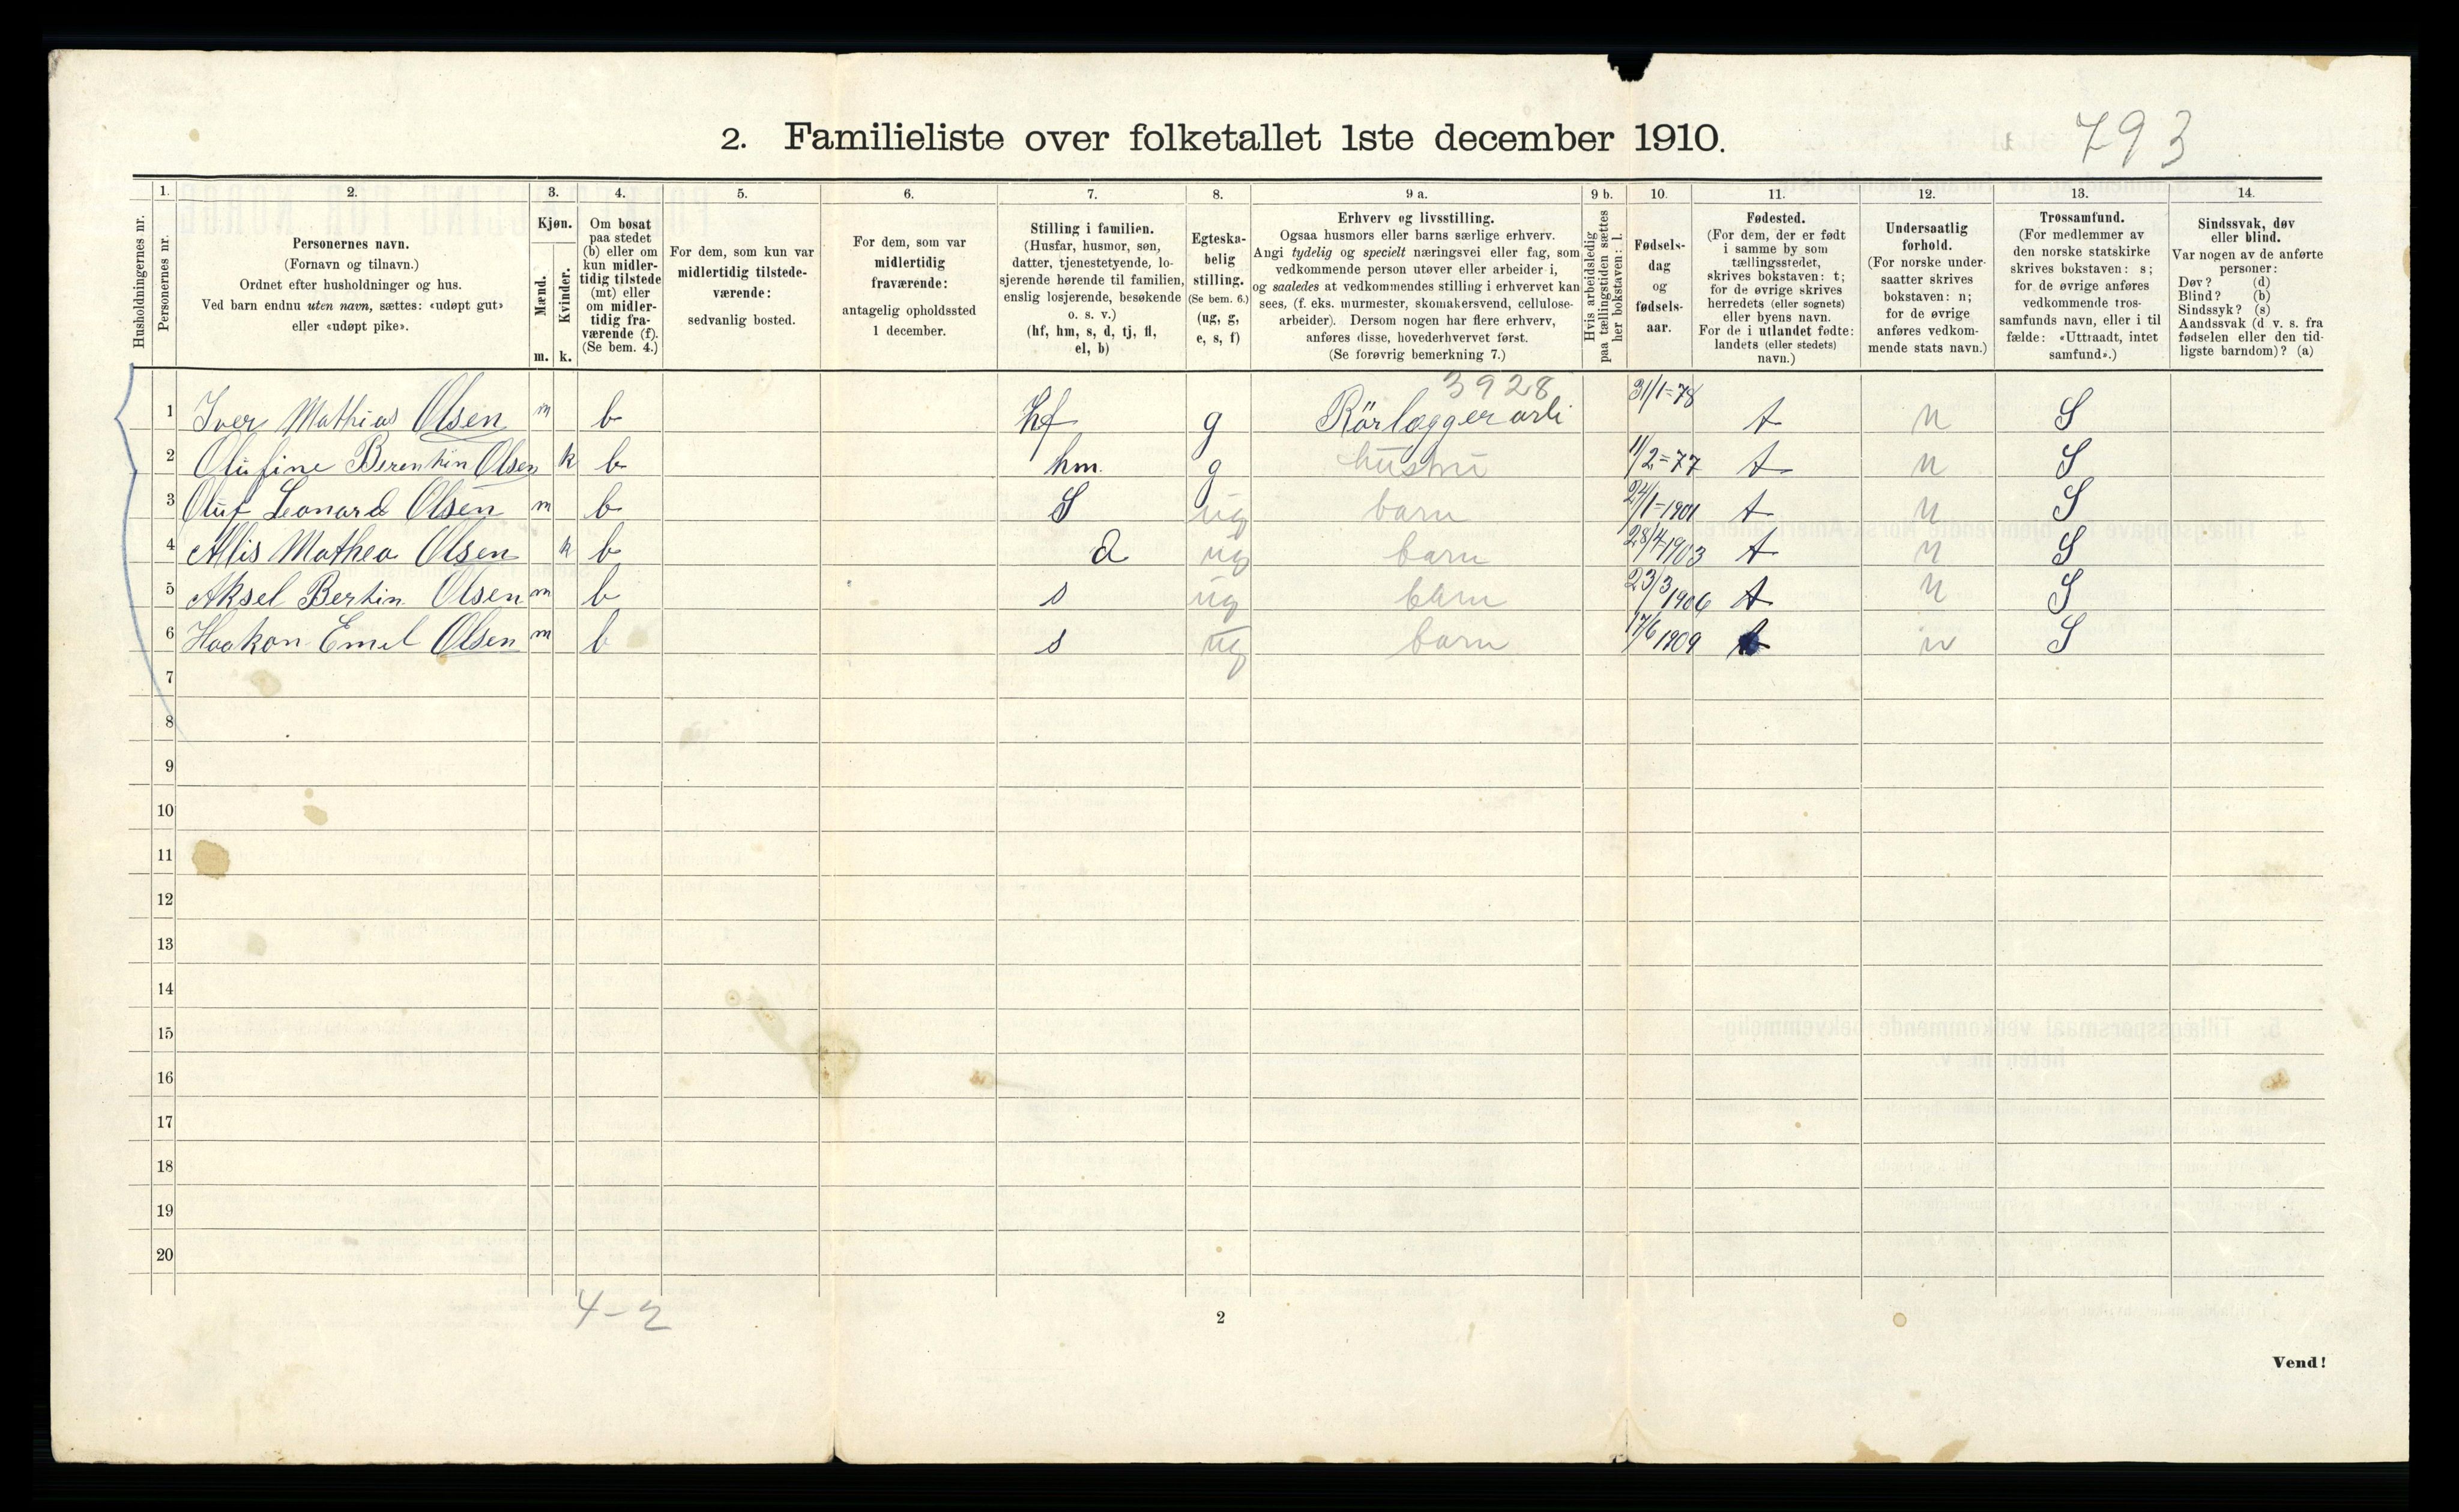 2. Familieliste over folketallet 1ste december 1910.
793
Husholdningernes nr.
1.
Personernes nr.
2.
Personernes navn.
(Fornavn og tilnavn.)
Ordnet efter husholdninger og hus.
Ved barn endnu uten navn, sættes: «udøpt gut»
eller «udøpt pike».
3.
Kjøn.
Mænd.
Kvinder.
m. k.
4.
Om bosat
paa stedet
(b) eller om
kun midler-
tidig tilstede
(mt) eller
om midler-
tidig fra-
værende (f).
(Se bem. 4.)
5.
For dem, som kun var
midlertidig tilstede-
værende:
sedvanlig bosted.
6.
For dem, som var
midlertidig
fraværende:
antagelig opholdssted
1 december.
7.
Stilling i familien.
(Husfar, husmor, søn,
datter, tjenestetyende, lo-
sjerende hørende til familien,
enslig losjerende, besøkende
o. s. v.)
(hf, hm, s, d, tj, fl,
el, b)
8.
Egteska-
belig
stilling.
(Se bem. 6.)
(ug, g,
e, s, f)
9 a.
Erhverv og livsstilling.
Ogsaa husmors eller barns særlige erhverv.
Angi tydelig og specielt næringsvei eller fag, som
vedkommende person utøver eller arbeider i,
og saaledes at vedkommendes stilling i erhvervet kan
sees, (f. eks. murmester, skomakersvend, cellulose-
arbeider). Dersom nogen har flere erhverv,
anføres disse, hovederhvervet først.
(Se forøvrig bemerkning 7.)
9 b.
Hvis arbeidsledig
paa tællingstiden sættes
her bokstaven: l.
10.
Fødsels-
dag
og
fødsels-
aar.
11.
Fødested.
(For dem, der er født
i samme by som
tællingsstedet,
skrives bokstaven: t;
for de øvrige skrives
herredets (eller sognets)
eller byens navn.
For de i utlandet fødte:
landets (eller stedets)
navn.)
12.
Undersaatlig
forhold.
(For norske under-
saatter skrives
bokstaven: n;
for de øvrige
anføres vedkom-
mende stats navn.)
13.
Trossamfund.
(For medlemmer av
den norske statskirke
skrives bokstaven: s;
for de øvrige anføres
vedkommende tros-
samfunds navn, eller i til-
fælde: «Uttraadt, intet
samfund».)
14.
Sindssvak, døv
eller blind.
Var nogen av de anførte
personer:
Døv? (d)
Blind? (b)
Sindssyk? (s)
Aandssvak (d. v. s. fra
fødselen eller den tid-
ligste barndom)? (a)
3928
1 Iver Mathias Olsen m b hf g Rörlægger arb 31/1=78 t n S
2 Olufine Berentin Olsen k b hm. g hustru 11/2=77 t n S
3 Oluf Leonard Olsen m b S ug barn 24/1=1901 t n S
4 Allis Mathea Olsen k b d ug barn 28/4=1903 t n S
5 Aksel Bertin Olsen m b s ug barn 23/3 1906 t n S
6 Haakon Emil Olsen m b s ug barn 17/6 1909 t n S
7
8
9
10
11
12
13
14
15
16
17
18
19
20
4-2
2
Vend!